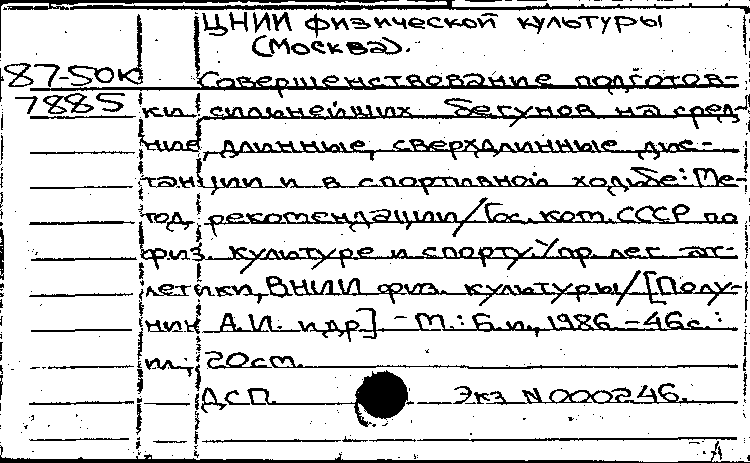 ЦНИИ физической культуры
(Москва).
87-50к Совершенствование подготов-
7885 ки сильнейших бегунов на сред-
ние, длинные, сверхдлинные дис-
танции и в спортивной ходьбе: Ме-
тод. рекомендации/Гос. ком. СССР по
физ. культуре и спорту. Упр. лег. ат-
летики, ВНИИ физ. культуры/[Полу-
нин А.И. и др]. - М.: Б.и., 1986. - 46с.:
ил.; 20см.
ДСП. Экз N 000246.
А